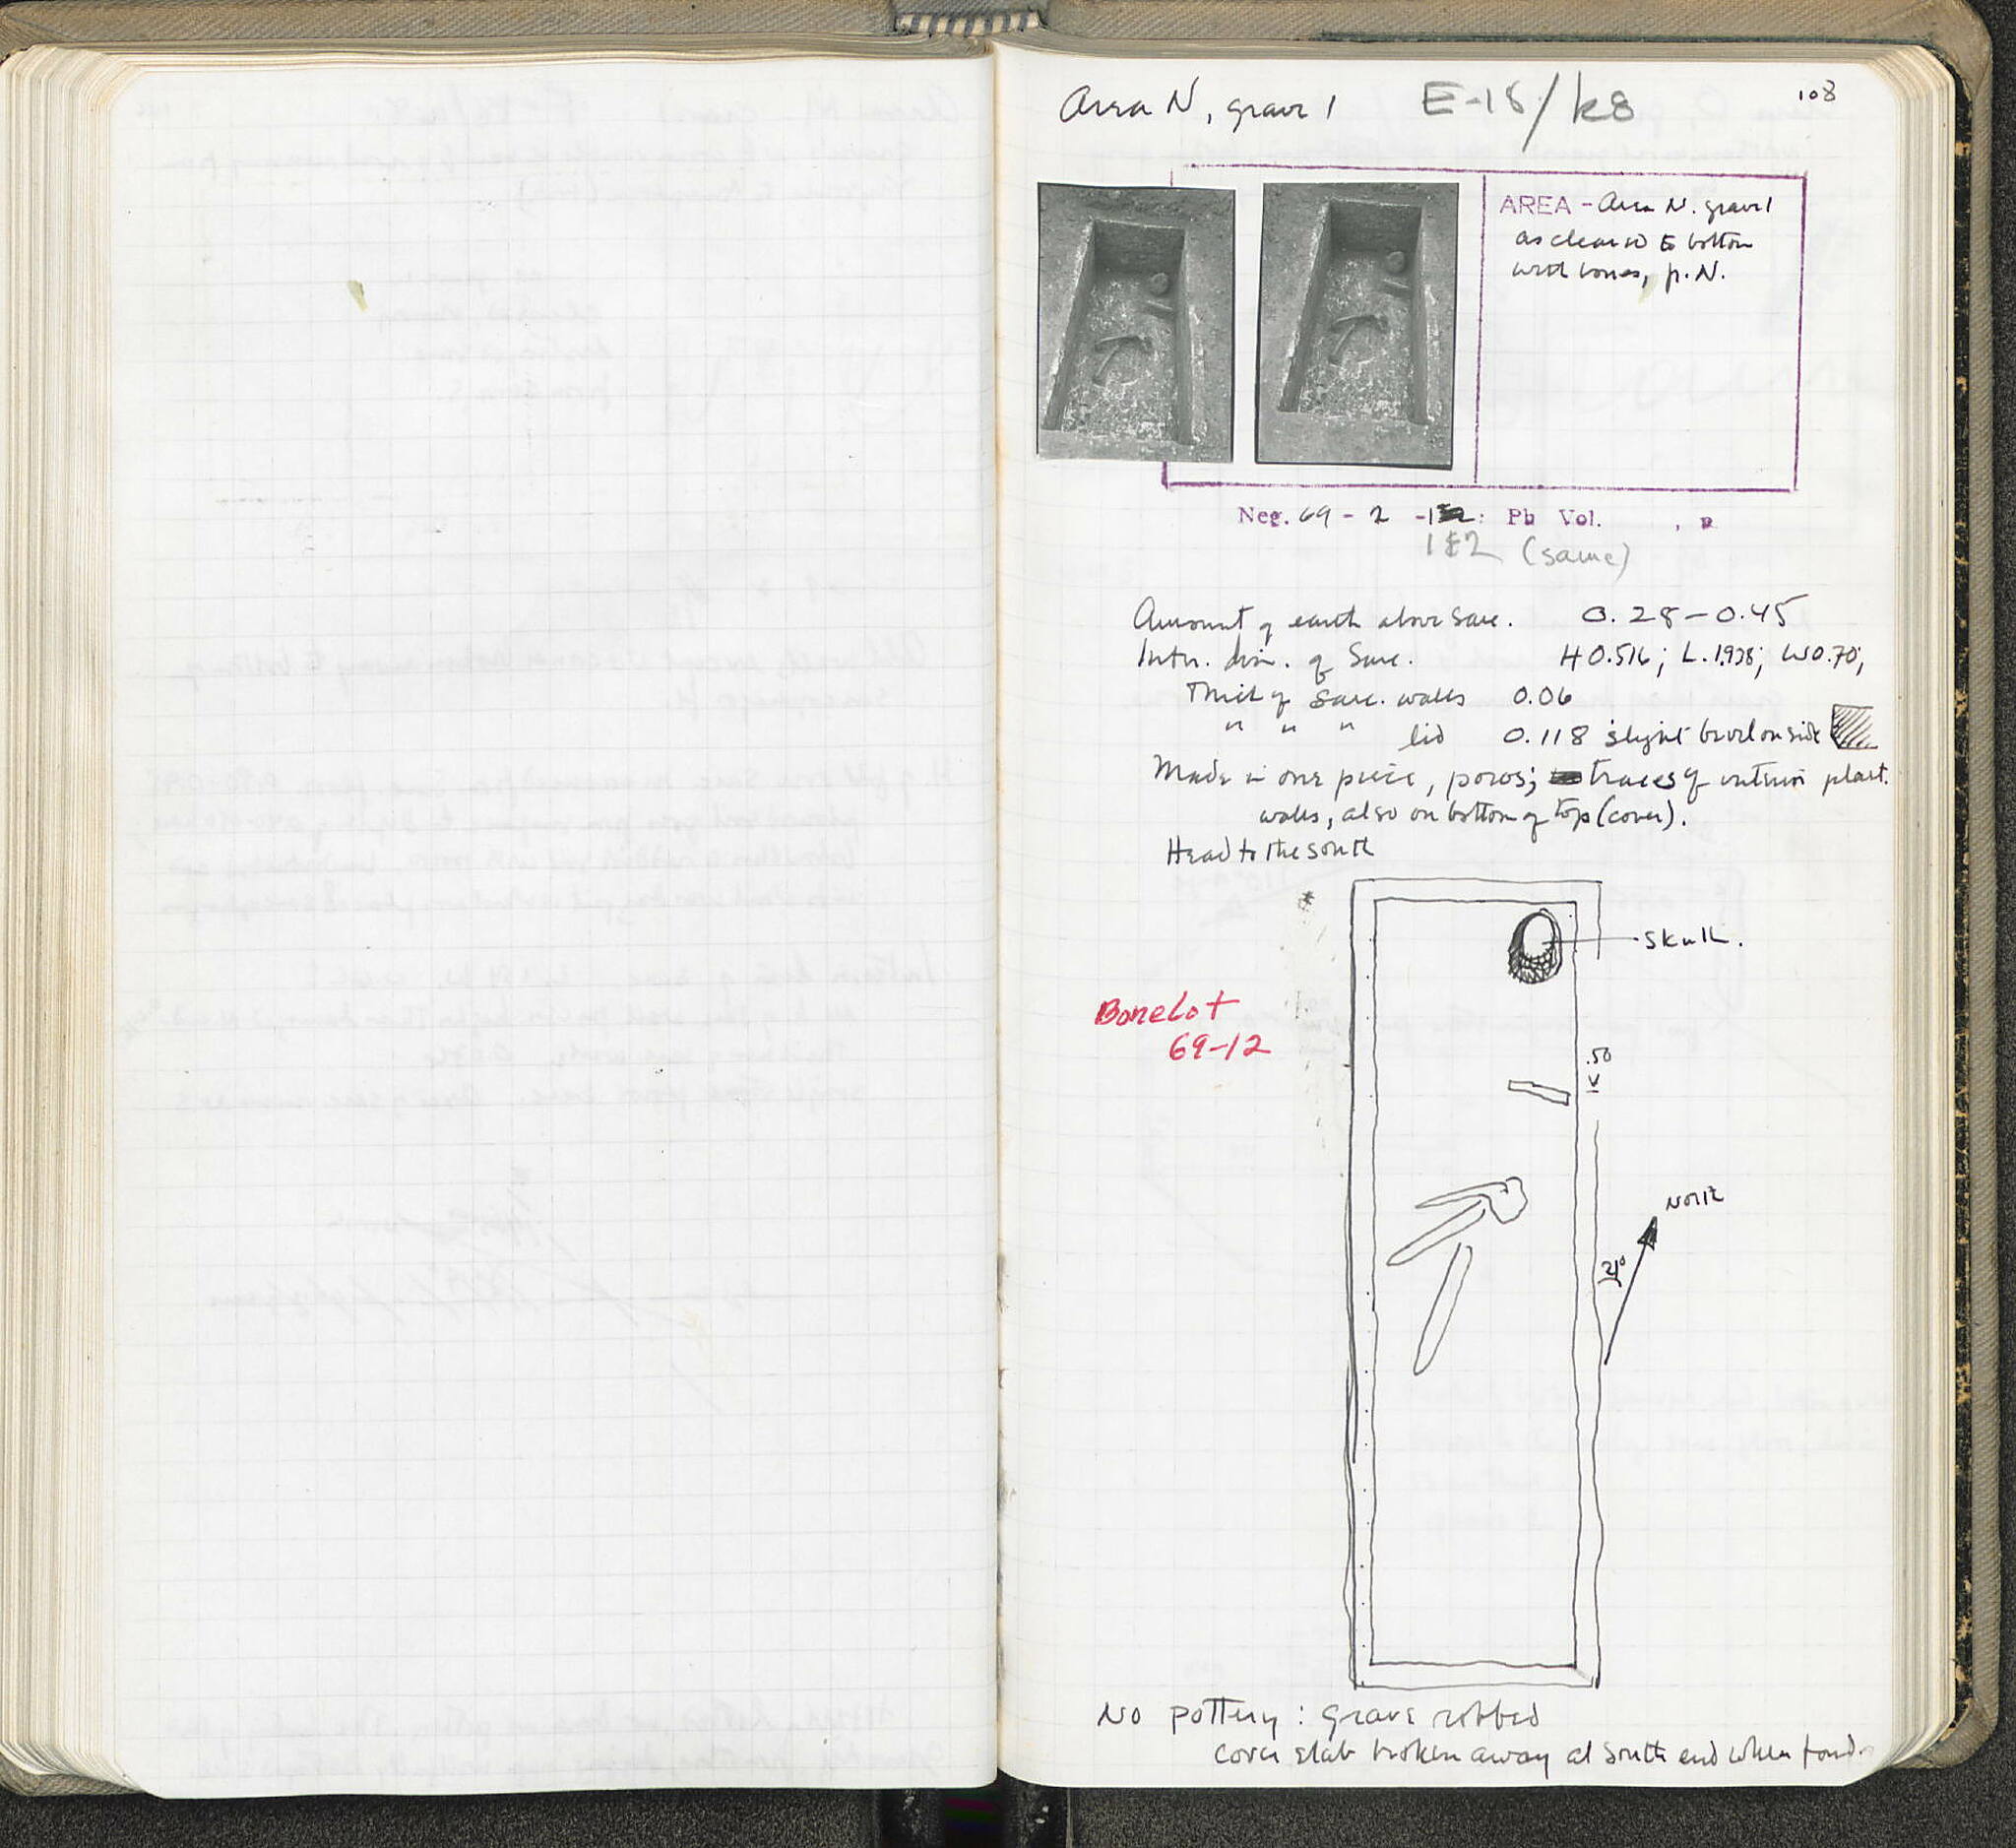 Area N, grave 1 E-18/k8 108
AREA - Area N. grave 1
as cleared to bottom
with bones, p. N.
Neg. 69 - 2 -1: Pb Vol. , p
1 & 2 (same)
Amount of earth above Sarc. 0.28-0.45
Intr. dim. of Sarc. H 0.516; L. 1.978; W 0.70;
Thick of Sarc. walls 0.06
" " " lid 0.118 slight bevel on side
Made in one piece, poros; traces of interior plast.
walls, also on bottom of top (cover).
Head to the south
Skull.
Bone Lot
69-12
.50
V
North
21°
No pottery: grave robbed
cover slab broken away at south end when found.